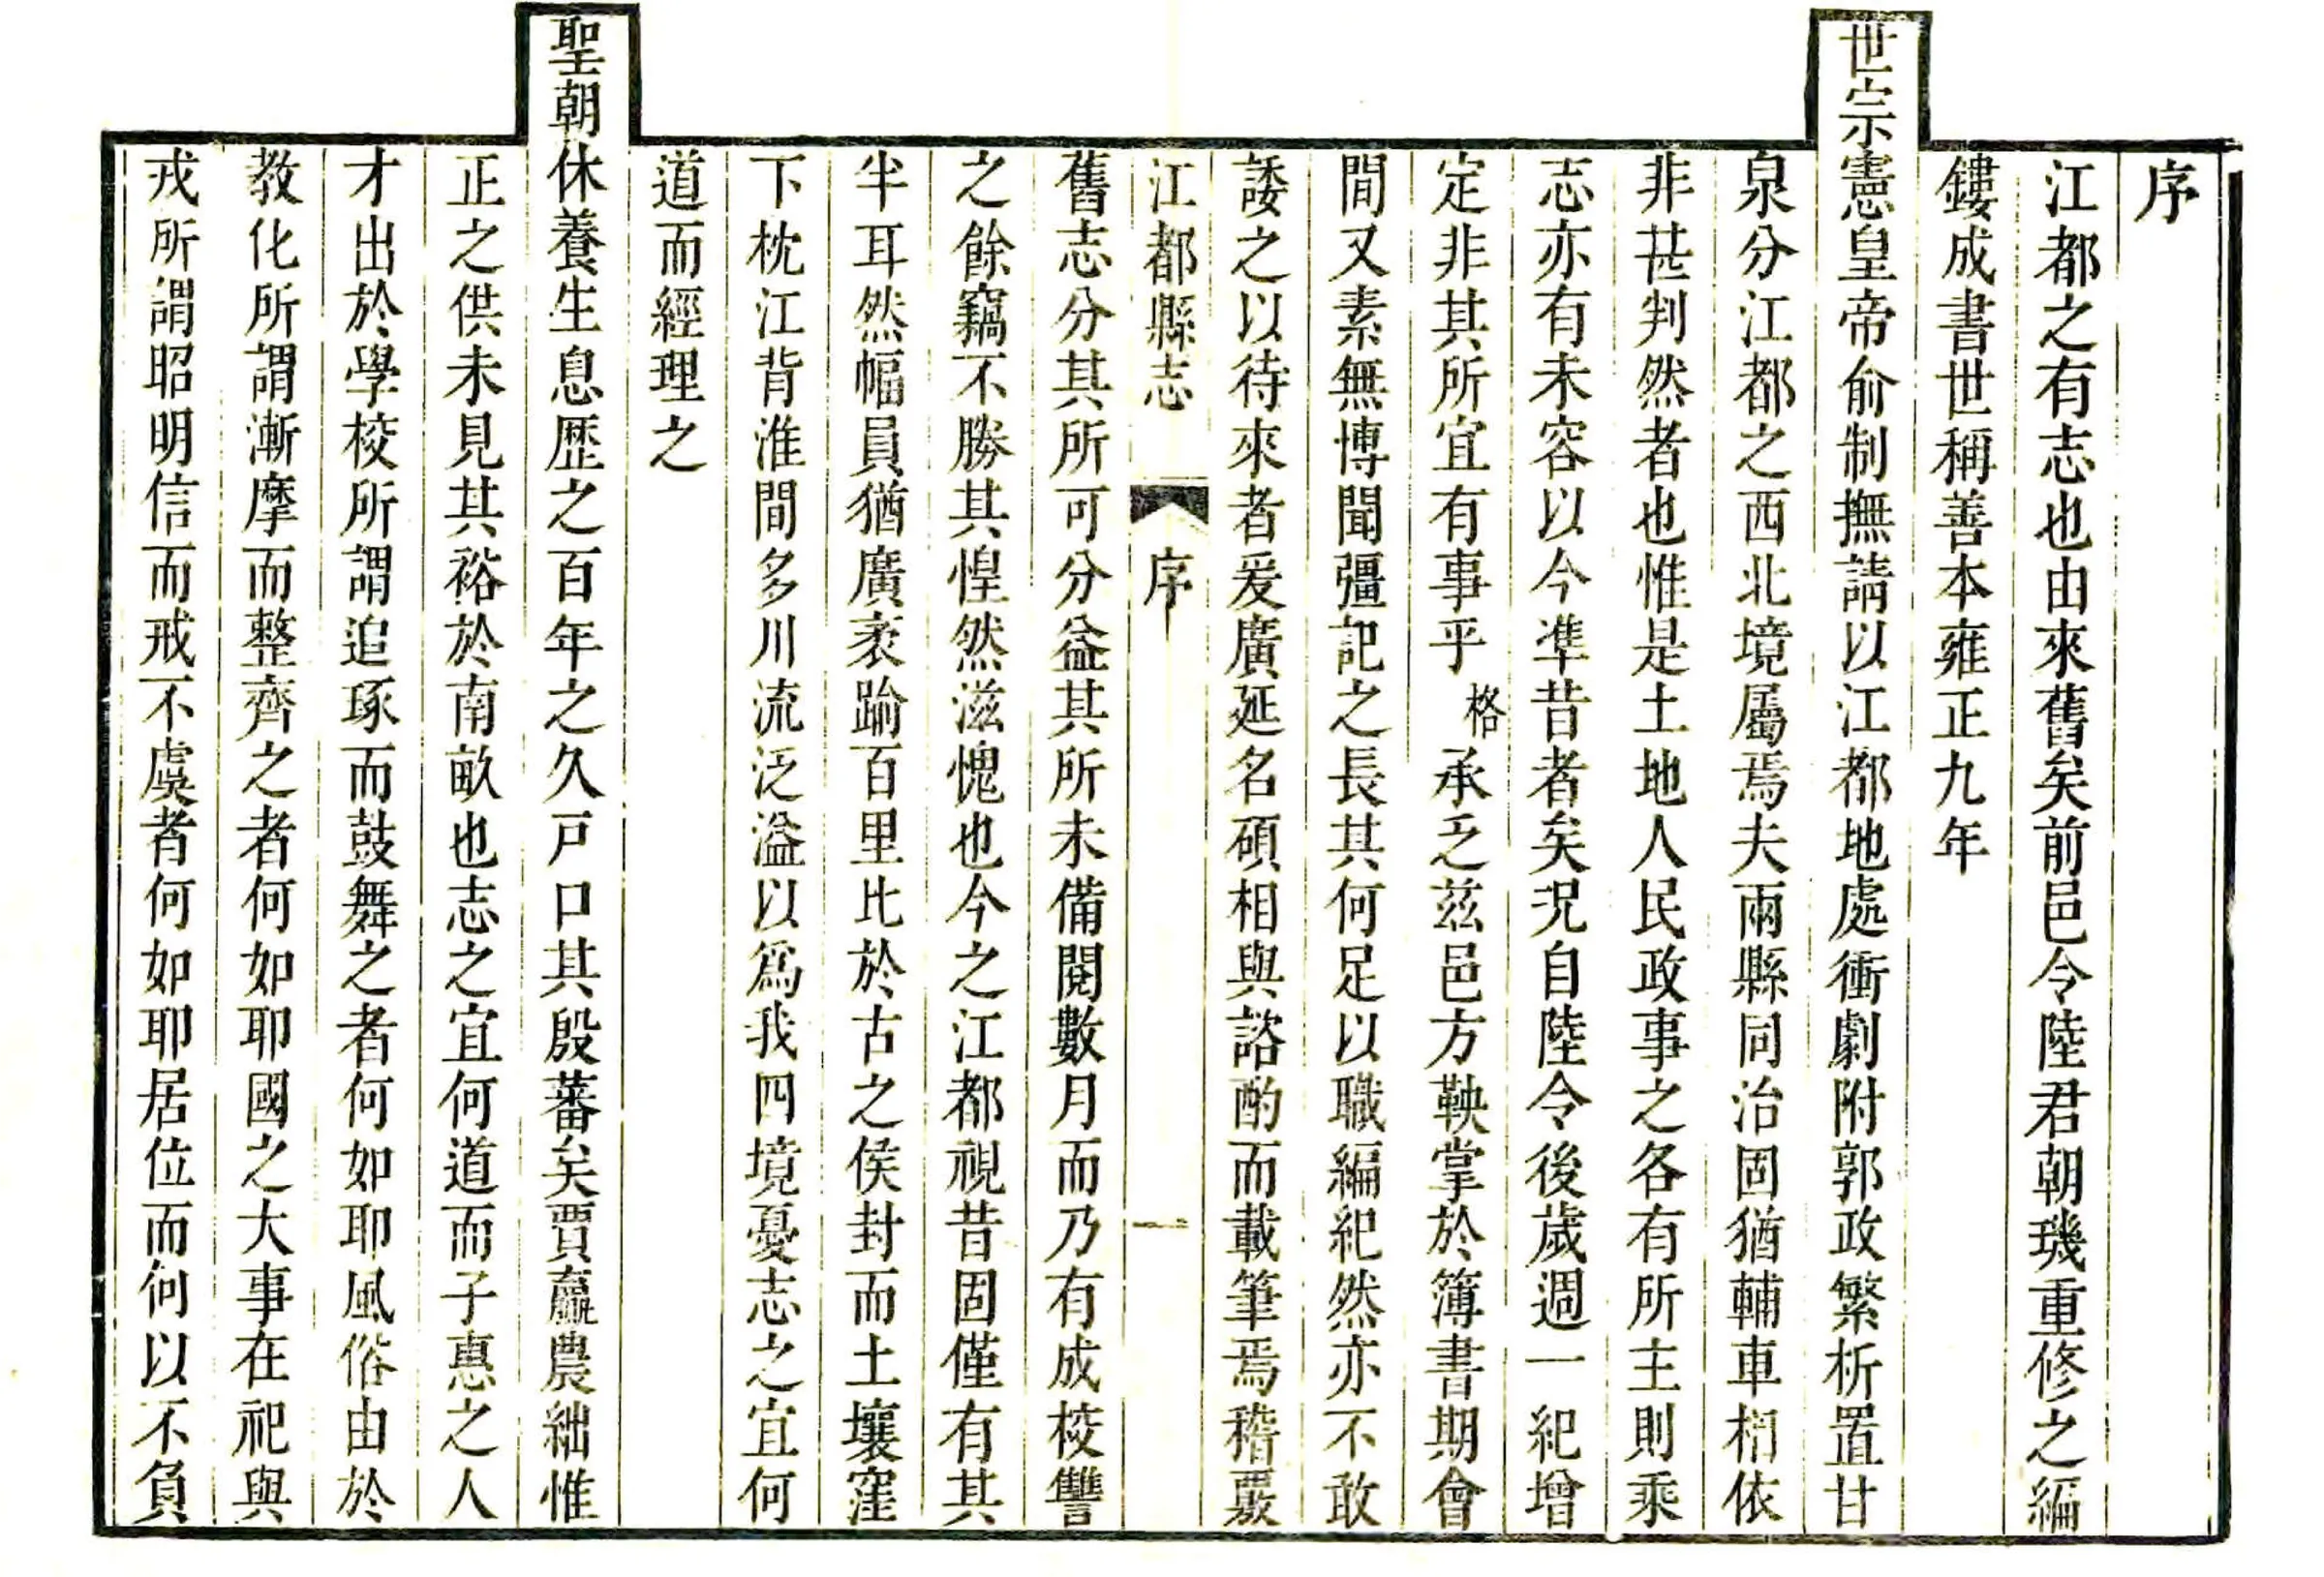 序
江都之有志也由來舊矣前邑令陸君朝璣重修之編
鏤成書世稱善本雍正九年
世宗憲皇帝俞制撫請以江都地處衝劇附郭政繁析置甘
泉分江都之西北境屬焉夫兩縣同治固猶輔車相依
非甚判然者也惟是土地人民政事之各有所主則乘
志亦有未容以今準昔者矣况自陸令後歲週一紀增
定非其所宜有事乎格承乏兹邑方鞅掌於簿書期會
間又素無博聞彊記之長其何足以職編紀然亦不敢
諉之以待來者爰廣延名碩相與諮酌而載筆焉稽覈
江都縣志 序 一
舊志分其所可分益其所未備閱數月而乃有成校讐
之餘竊不勝其惶然滋愧也今之江都視昔固僅有其
半耳然幅員猶廣袤踰百里比於古之侯封而土壤窪
下枕江背淮間多川流泛溢以爲我四境憂志之宜何
道而經理之
聖朝休養生息歷之百年之久戸口其殷蕃矣賈贏農絀惟
正之供未見其裕於南畝也志之宜何道而子惠之人
才出於學校所謂追琢而鼓舞之者何如耶風俗由於
教化所謂漸摩而整齊之者何如耶國之大事在祀與
戎所謂昭明信而戒不虞者何如耶居位而何以不負